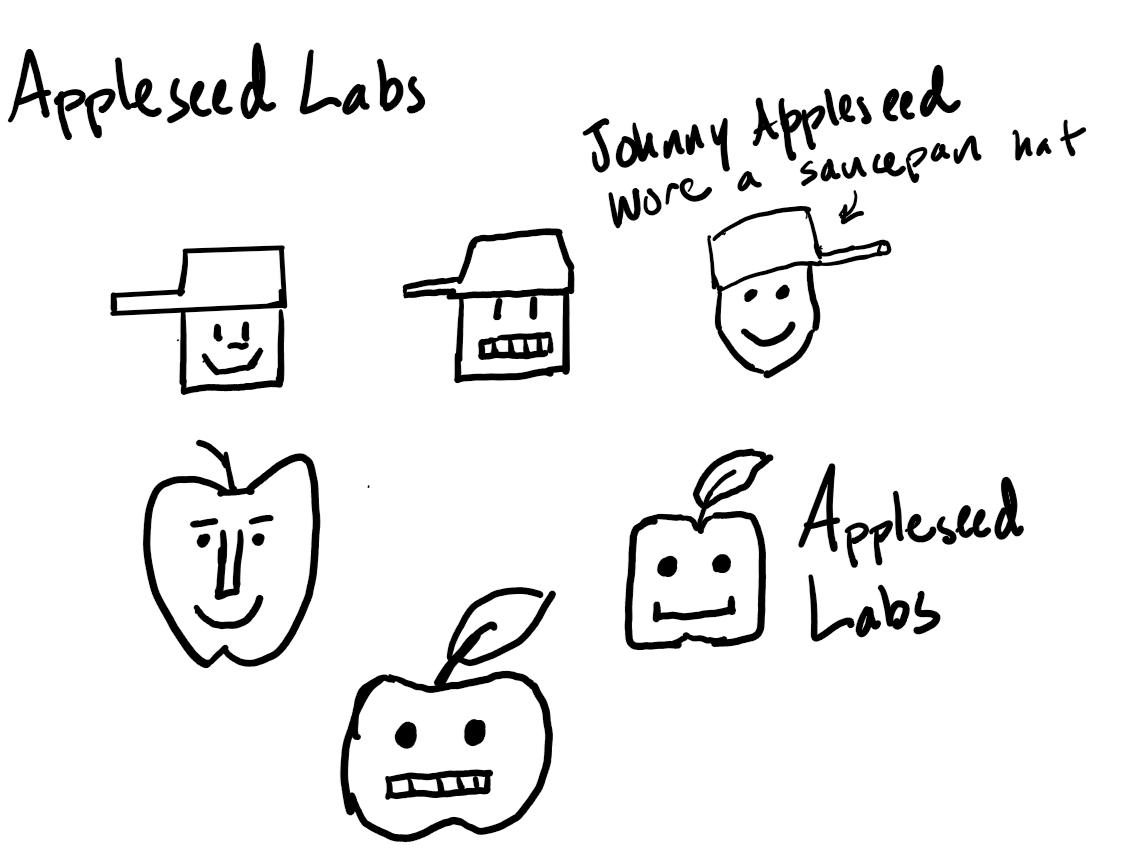 Appleseed Labs
Johnny Appleseed
wore a saucepan hat
Appleseed
Labs